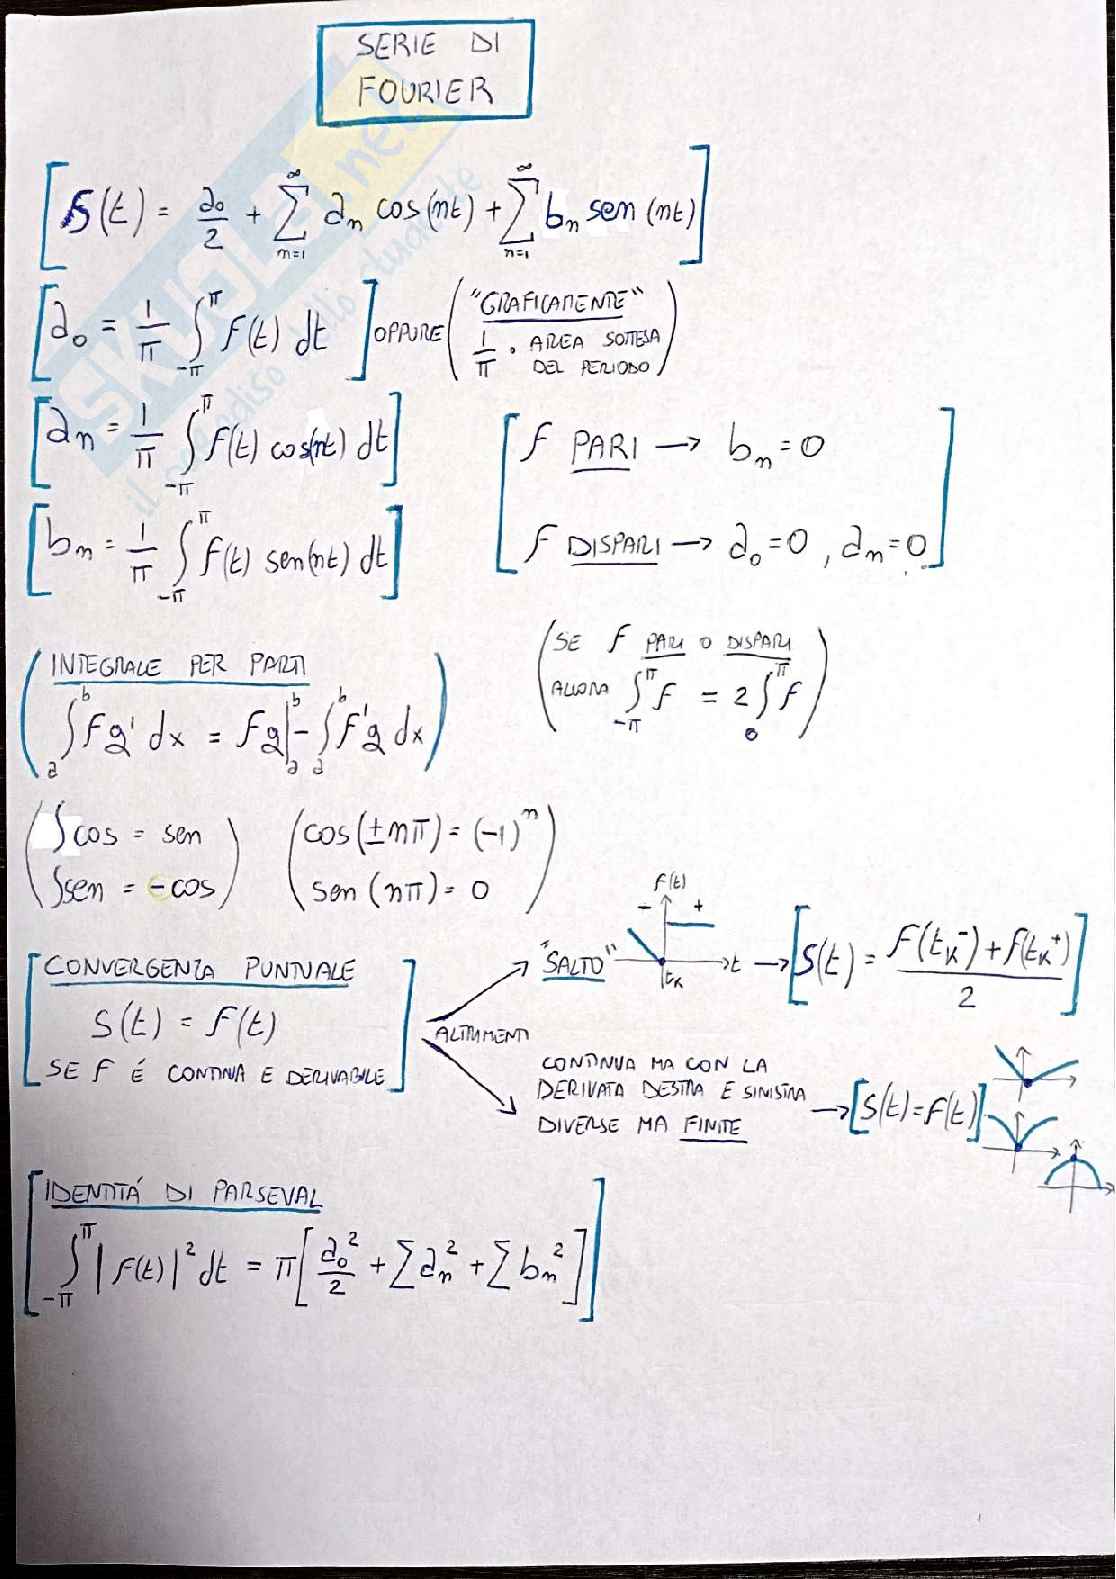 SERIE DI
FOURIER
S(t) = a₀/2 + ∑_{n=1}^{∞} aₙ cos(nt) + ∑_{n=1}^{∞} bₙ sen(nt)
a₀ = 1/π ∫_{-π}^{π} f(t) dt OPPURE ("GRAFICAMENTE"
1/π · AREA SOTTESA
DEL PERIODO)
aₙ = 1/π ∫_{-π}^{π} f(t) cos(nt) dt
f PARI → bₙ = 0
bₙ = 1/π ∫_{-π}^{π} f(t) sen(nt) dt
f DISPARI → a₀=0, aₙ=0
INTEGRALE PER PARTI
∫_a^b fg' dx = fg|_a^b - ∫_a^b f'g dx
(SE f PARI O DISPARI
ALLORA ∫_{-π}^{π} f = 2∫_0^π f)
(∫cos = sen
∫sen = -cos)
(cos(±nπ) = (-1)ⁿ
sen(nπ) = 0)
CONVERGENZA PUNTUALE
S(t) = f(t)
SE f É CONTINUA E DERIVABILE
ALTRIMENTI
"SALTO"
f(t)
- +
t
t_K
→ [S(t) = (f(t_K⁻) + f(t_K⁺))/2]
CONTINUA MA CON LA
DERIVATA DESTRA E SINISTRA
DIVERSE MA FINITE → [S(t) = f(t)]
IDENTITÁ DI PARSEVAL
∫_{-π}^{π} |f(t)|² dt = π[a₀²/2 + ∑aₙ² + ∑bₙ²]
SKUOLA.net
il paradiso dello studente